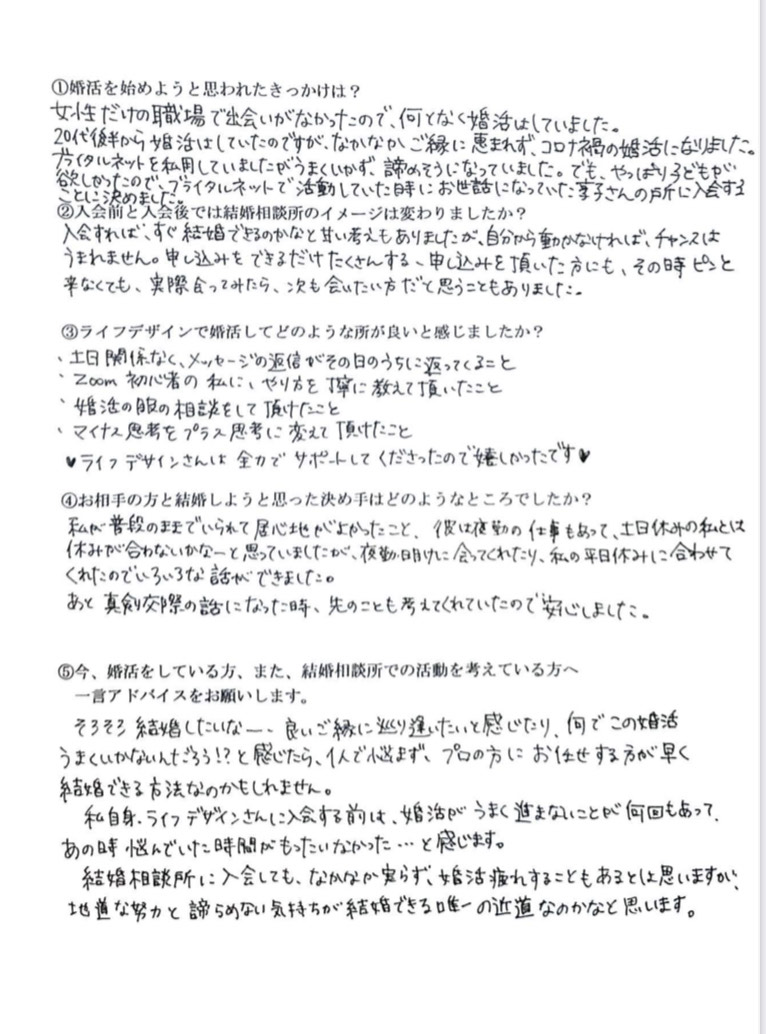 ①婚活を始めようと思われたきっかけは？
女性だけの職場で出会いがなかったので、何となく婚活はしていました。
20代後半から婚活はしていたのですが、なかなかご縁に恵まれず、コロナ禍の婚活になりました。
ブライダルネットを利用していましたがうまくいかず、諦めそうになっていました。でも、やっぱり子どもが
欲しかったので、ブライダルネットで活動していた時にお世話になっていた享子さんの所に入会する
ことに決めました。
②入会前と入会後では結婚相談所のイメージは変わりましたか？
入会すれば、すぐ結婚できるのかなと甘い考えもありましたが、自分から動かなければ、チャンスは
うまれません。申し込みをできるだけたくさんする、申し込みを頂いた方にも、その時ピンと
来なくても、実際会ってみたら、次も会いたい方だと思うこともありました。
③ライフデザインで婚活してどのような所が良いと感じましたか？
・土日関係なく、メッセージの返信がその日のうちに返ってくること
・Zoom初心者の私に、やり方を丁寧に教えて頂いたこと
・婚活の服の相談をして頂けたこと
・マイナス思考をプラス思考に変えて頂けたこと
♥ライフデザインさんは全力でサポートしてくださったので嬉しかったです♥
④お相手の方と結婚しようと思った決め手はどのようなところでしたか？
私が普段のままでいられて居心地がよかったこと、彼は夜勤の仕事もあって、土日休みの私とは
休みが合わないかなーと思っていましたが、夜勤明けに会ってくれたり、私の平日休みに合わせて
くれたのでいろいろな話ができました。
あと真剣交際の話になった時、先のことも考えてくれていたので安心しました。
⑤今、婚活をしている方、また、結婚相談所での活動を考えている方へ
一言アドバイスをお願いします。
そろそろ結婚したいなー、良いご縁に巡り逢いたいと感じたり、何でこの婚活
うまくいかないんだろう!?と感じたら、1人で悩まず、プロの方にお任せする方が早く
結婚できる方法なのかもしれません。
私自身、ライフデザインさんに入会する前は、婚活がうまく進まないことが何回もあって、
あの時悩んでいた時間がもったいなかった…と感じます。
結婚相談所に入会しても、なかなか実らず、婚活疲れすることもあるとは思いますが、
地道な努力と諦めない気持ちが結婚できる唯一の近道なのかなと思います。